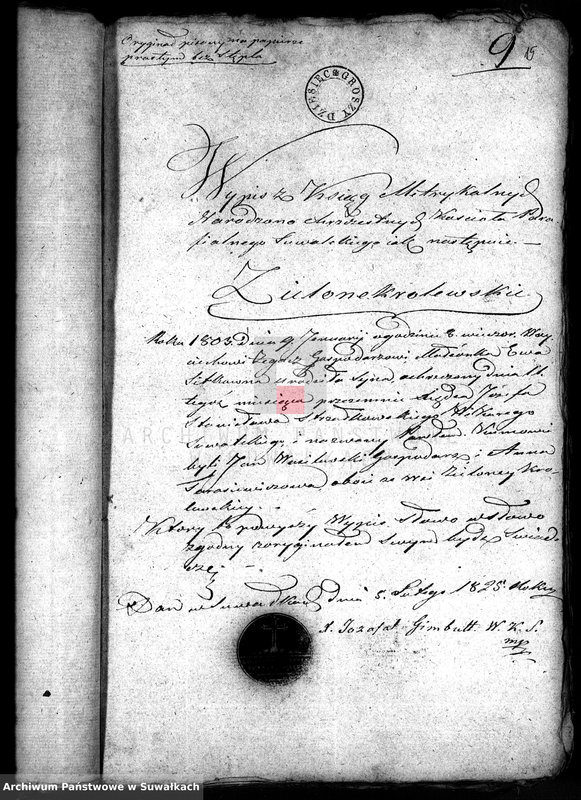 Oryginał pisany na papierze
prostym bez Stępla
9 15
DZIESIĘC GROSZY
Wypis z Ksiąg Metrykalnych
Narodzono chrzestnych Kościoła Para
fialnego Suwalskiego iak następuie. —
Zielonekrolewskie
Roku 1803. Dnia 9 Januarij o godzinie 8 wieczor. Woy
ciechowi Gospodarzowi Małżonka Ewa
urodziła Syna ochrzczony dnia 11
tegoż miesiąca przezemnie Xiędza Józefa
Stanisława Wikarego
Suwalskieg. i nazwany Kumowi
byli Jan Wasilewski Gospodarz i Anna
Tarasiewiczowa oboie ze Wsi Zieloney Kro
lewskiey
Ktory to powyższy Wypis słowo w słowo
zgodny z oryginałem swym bydź świad
czę
Dan w Suwałkach dnia 5. Lutego 1825 Roku
X. Jozafat Gimbutt W. K. S.
mp
ARCHIWUM PAŃSTWOWE
Archiwum Państwowe w Suwałkach